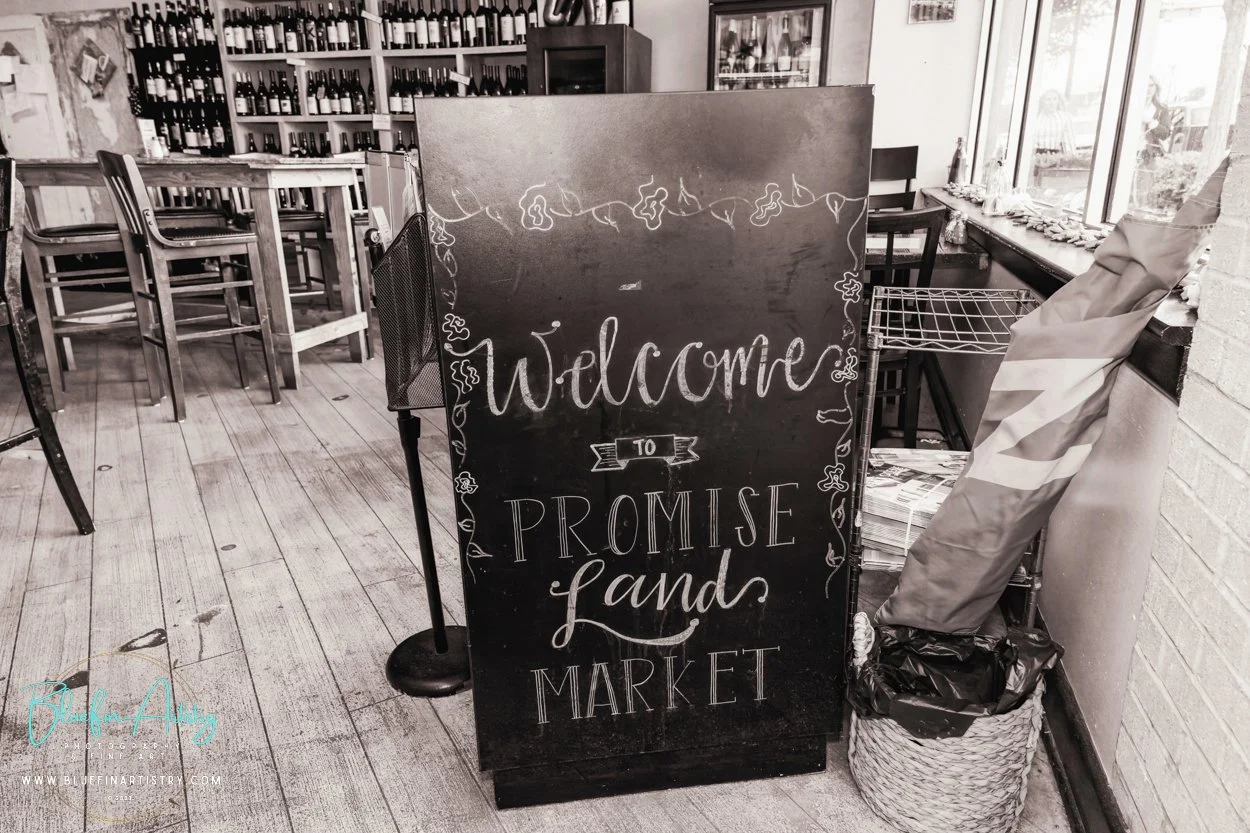 Welcome
TO
PROMISE
Land
MARKET
Bluefin Artistry
PHOTOGRAPHY
& FINE ART
WWW.BLUEFINARTISTRY.COM